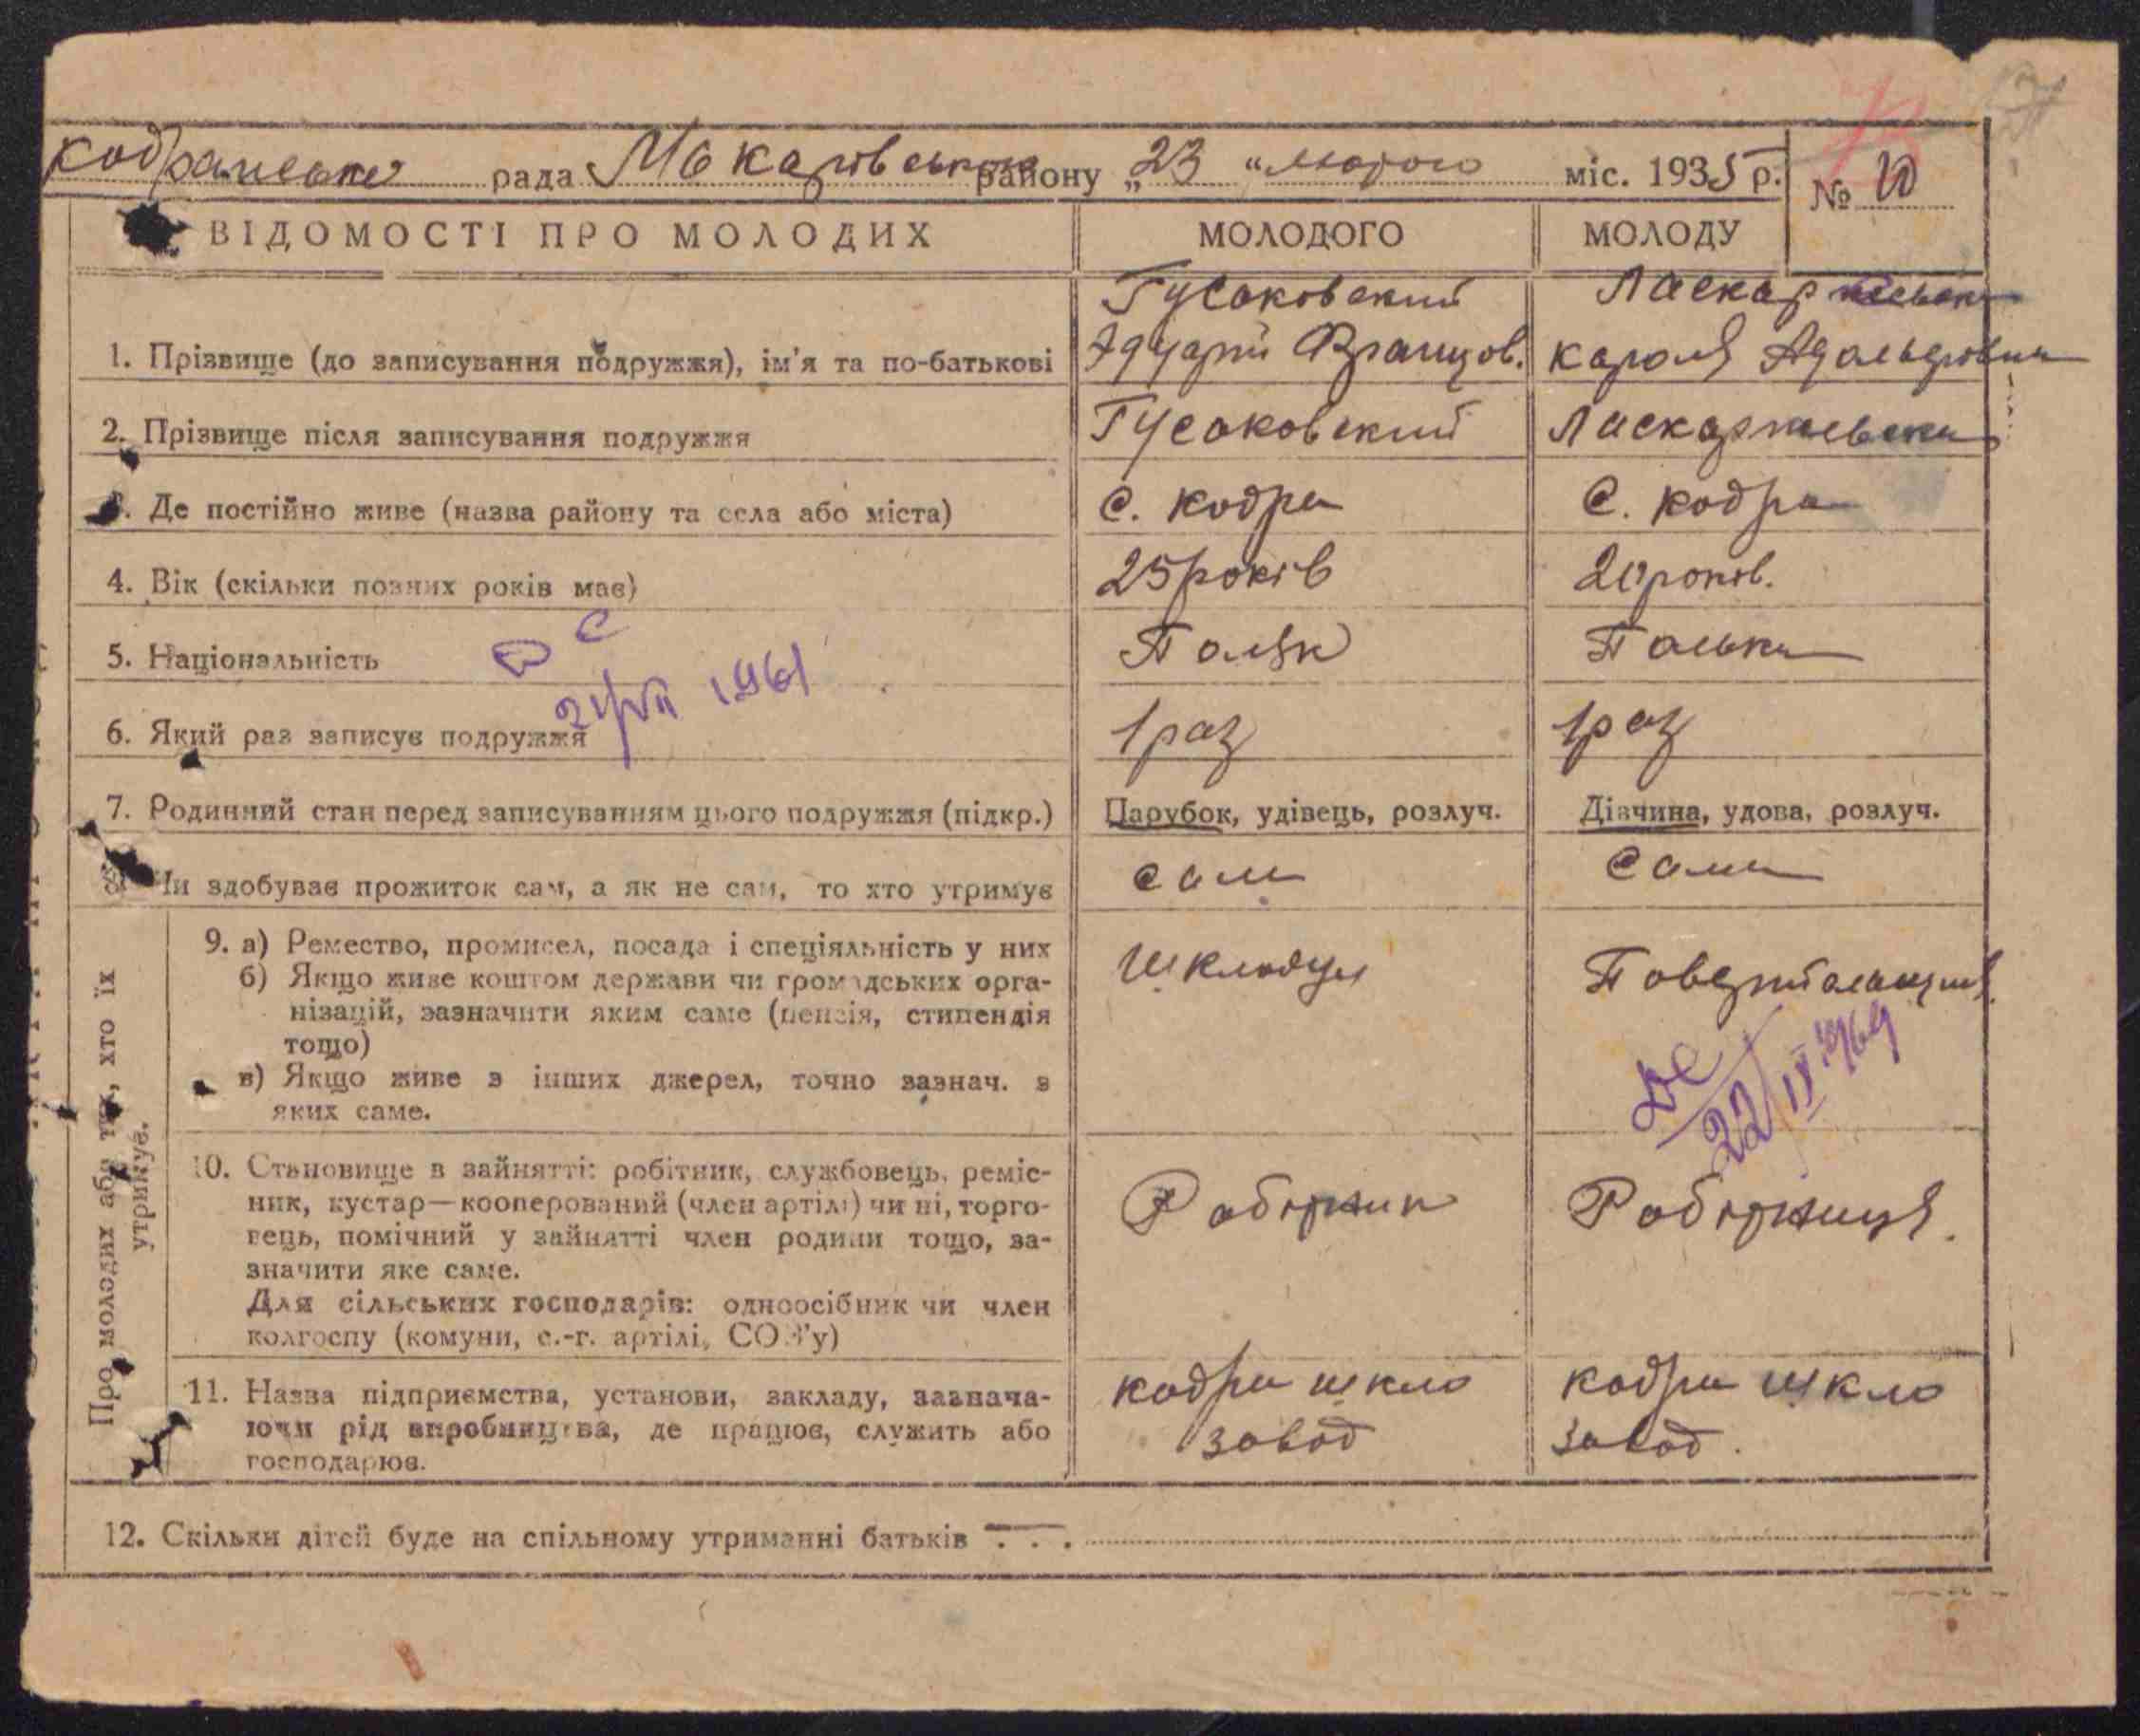 Кодранська рада Макарівського району „23" лютого міс. 1935 р.
№ 10
ВІДОМОСТІ ПРО МОЛОДИХ
МОЛОДОГО
МОЛОДУ
1. Прізвище (до записування подружжя), ім'я та по-батькові
Гусаковский
Эдуард Францов.
Ласкаржевська
Кароля Адольфовна
2. Прізвище після записування подружжя
Гусаковский
Ласкаржевска
3. Де постійно живе (назва району та села або міста)
С. Кодра
С. Кодра
4. Вік (скільки повних років має)
25 років
20 років.
5. Національність
Поляк
Полька
21/VII 1961
6. Який раз записує подружжя
1 раз
1 раз
7. Родинний стан перед записуванням цього подружжя (підкр.)
Парубок, удівець, розлуч.
Дівчина, удова, розлуч.
8. Чи здобуває прожиток сам, а як не сам, то хто утримує
Сам
Сама
Про молодих або тих, хто їх утримує.
9. а) Ремество, промисел, посада і спеціяльність у них
б) Якщо живе коштом держави чи громадських орга-
нізацій, зазначити яким саме (пенсія, стипендія
тощо)
в) Якщо живе з інших джерел, точно зазнач. з
яких саме.
Шклодув
22/IX 1969
10. Становище в зайнятті: робітник, службовець, реміс-
ник, кустар—кооперований (член артілі) чи ні, торго-
вець, помічний у зайнятті член родини тощо, за-
значити яке саме.
Для сільських господарів: одноосібник чи член
колгоспу (комуни, с.-г. артілі, СОЗ'у)
Робітник
Робітниця.
11. Назва підприємства, установи, закладу, зазнача-
ючи рід виробництва, де працює, служить або
господарює.
Кодра шкло
завод
Кодра шкло
завод.
12. Скільки дітей буде на спільному утриманні батьків —